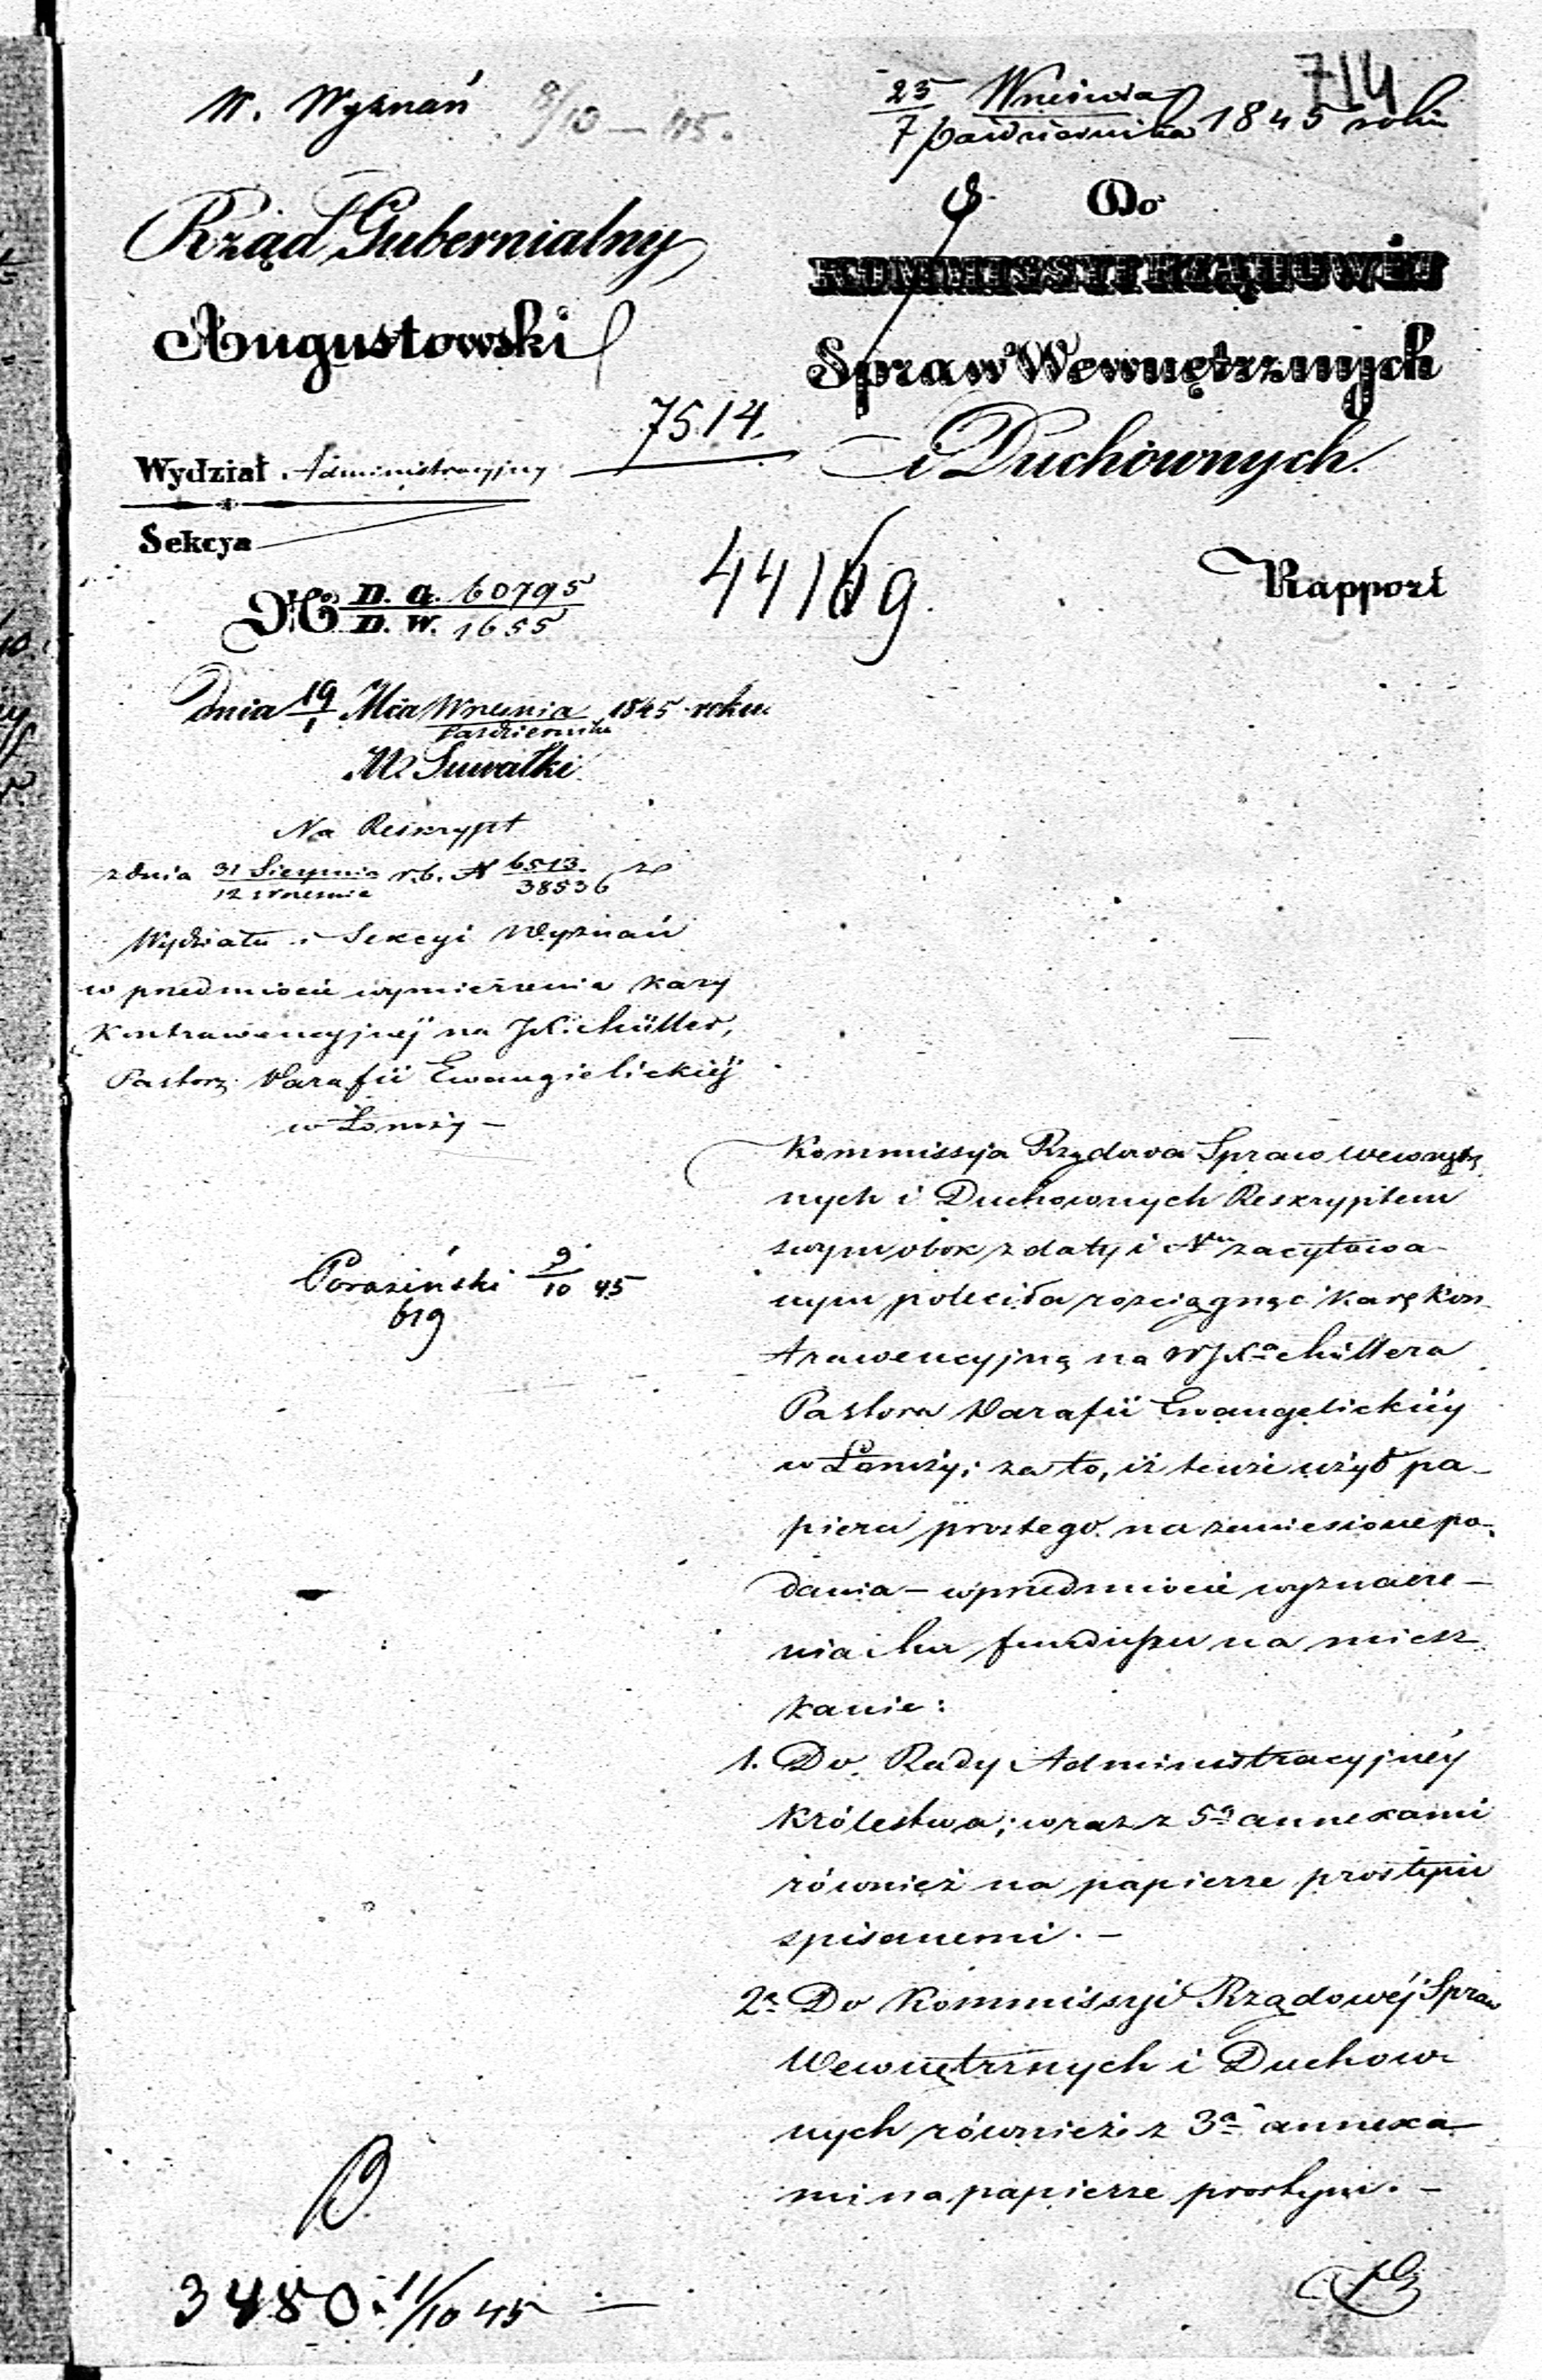 W. Wyznań 9/10 – 45.
714
25 Września
7 Października 1845 roku
Rząd Gubernialny
Augustowski
Do
KOMMISSYI RZĄDOWÉJ
Spraw Wewnętrznych
i Duchownych.
7514.
Wydział Administracyjny
Sekcya
44169.
Rapport
N D. G. 60795
D. W. 1655
dnia 19/1 Mca Września 1845 roku
Października
M. Suwałki
Na Reskrypt
z dnia 31 Sierpnia r.b. N 6513. z
12 Września 38536
Wydziału i Sekcyi Wyznań
w przedmiocie wymierzenia kary
kontrawencyjnéj na JX. Müller,
Pastorz Parafii Ewangielickiéj
w Łomży –
Porasiński 9/10 45
619
Kommissyja Rządowa Spraw Wewnętrz
nych i Duchownych Reskryptem
swym obok z daty i Nru zacytowa-
nym poleciła rozciągnąć karę kon
trawencyjną na WJXa Müllera
Pastora Parafii Ewangelickiéy
w Łomży; za to, iż tenże użył pa-
pieru prostego na zaniesione po-
dania – w przedmiocie wyznacze-
nia Mu funduszu na miesz
kanie:
1. Do Rady Administracyjnéy
Królestwa; wraz z 5a annexami
również na papierze prostym
spisanemi. –
2. Do Kommissyi Rządowéj Spraw
Wewnętrznych i Duchow-
nych również z 3a annexa
mi na papierze prostym. –
3480. 11/10 45 –